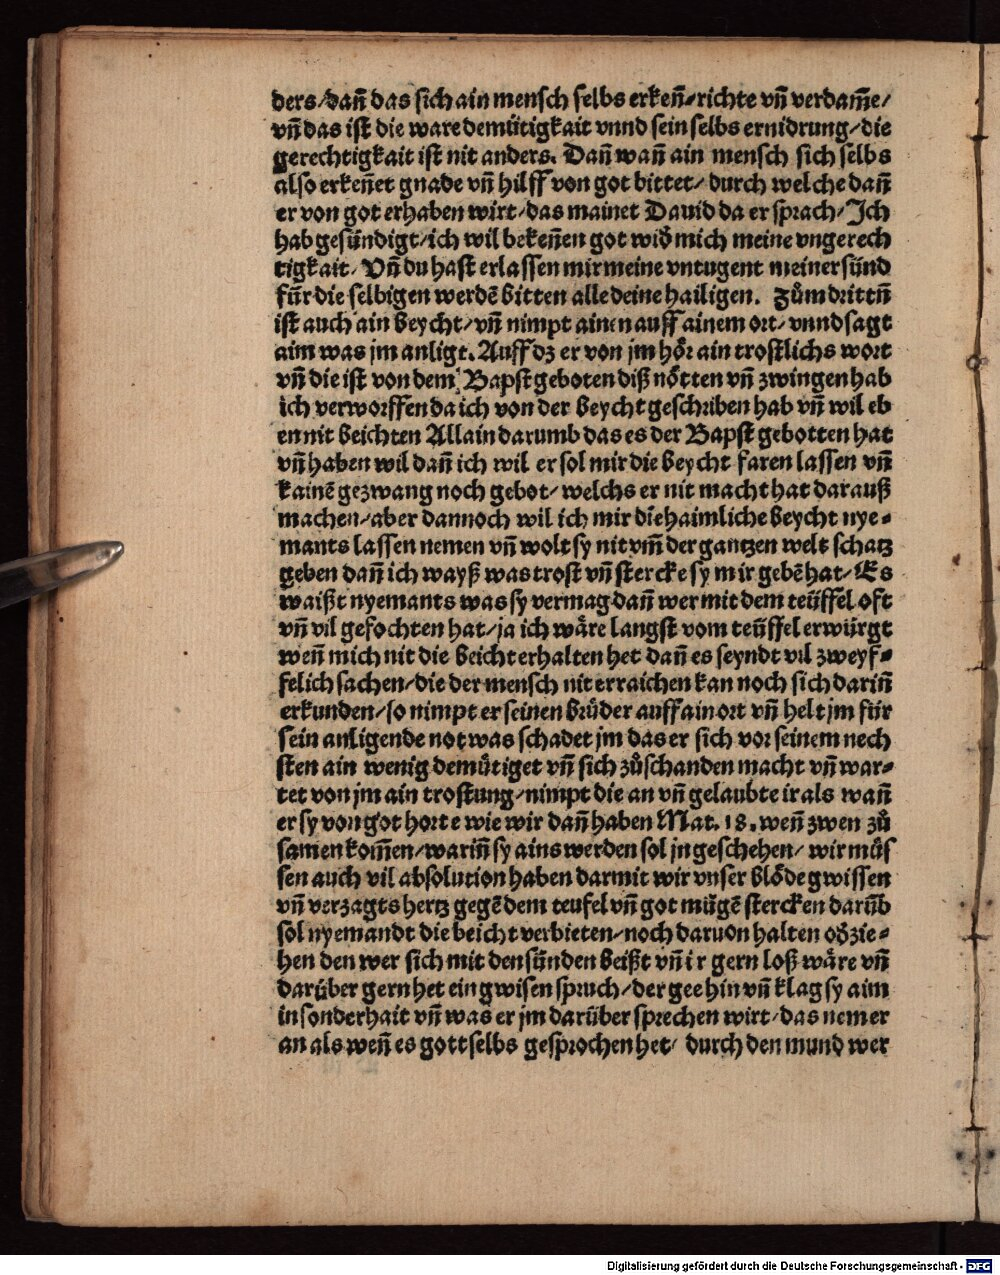 ders/dañ das sich ain mensch selbs erkeñ/richte vñ verdam̃e/
vñ das ist die ware demütigkait vnnd sein selbs ernidrung/die
gerechtigkait ist nit anders. Dañ wañ ain mensch sich selbs
also erkeñet gnade vñ hilff von got bittet/ durch welche dañ
er von got erhaben wirt/das mainet Dauid da er sprach/Ich
hab gesündigt/ich wil bekeñen got wið mich meine vngerech
tigkait/ Vñ du hast erlassen mir meine vntugent meiner sünd
für die selbigen werdē bitten alle deine hailigen. Zům drittñ
ist auch ain beycht/vñ nimpt ainen auff ainem ort/vnnd sagt
aim was jm anligt. Auff dz er von jm hör ain trostlichs wort
vñ die ist von dem Bapst geboten diß nötten vñ zwingen hab
ich verworffen da ich von der beycht geschriben hab vñ wil eb
en nit beichten Allain darumb das es der Bapst gebotten hat
vñ haben wil dañ ich wil er sol mir die beycht faren lassen vñ
kainē gezwang noch gebot/welchs er nit macht hat darauß
machen/aber dannoch wil ich mir die haimliche beycht nye-
mants lassen nemen vñ wolt sy nit vm̃ der gantzen welt schatz
geben dañ ich wayß was trost vñ stercke sy mir gebē hat/Es
waißt nyemants was sy vermag dañ wer mit dem teüffel oft
vñ vil gefochten hat/ja ich wäre langst vom teüffel erwürgt
weñ mich nit die beicht erhalten het dañ es seyndt vil zweyf-
felich sachen/die der mensch nit erraichen kan noch sich dariñ
erkunden/so nimpt er seinen brůder auff ain ort vñ helt jm für
sein anligende not was schadet jm das er sich vor seinem nech
sten ain wenig demůtiget vñ sich zůschanden macht vñ war-
tet von jm ain trostung/nimpt die an vñ gelaubte ir als wañ
er sy von got horte wie wir dañ haben Mat. 18. weñ zwen zů
samen kom̃en/wariñ sy ains werden sol jn geschehen/ wir můs
sen auch vil absolution haben darmit wir vnser blöde gwissen
vñ verzagts hertz gegē dem teufel vñ got mügē stercken darūb
sol nyemandt die beicht verbieten/noch daruon halten oð zie-
hen den wer sich mit den sünden beißt vñ ir gern loß wäre vñ
darüber gern het ein gwisen spruch/der gee hin vñ klag sy aim
in sonderhait vñ was er jm darüber sprechen wirt/das nem er
an als weñ es gott selbs gesprochen het/ durch den mund wer
Digitalisierung gefördert durch die Deutsche Forschungsgemeinschaft - DFG